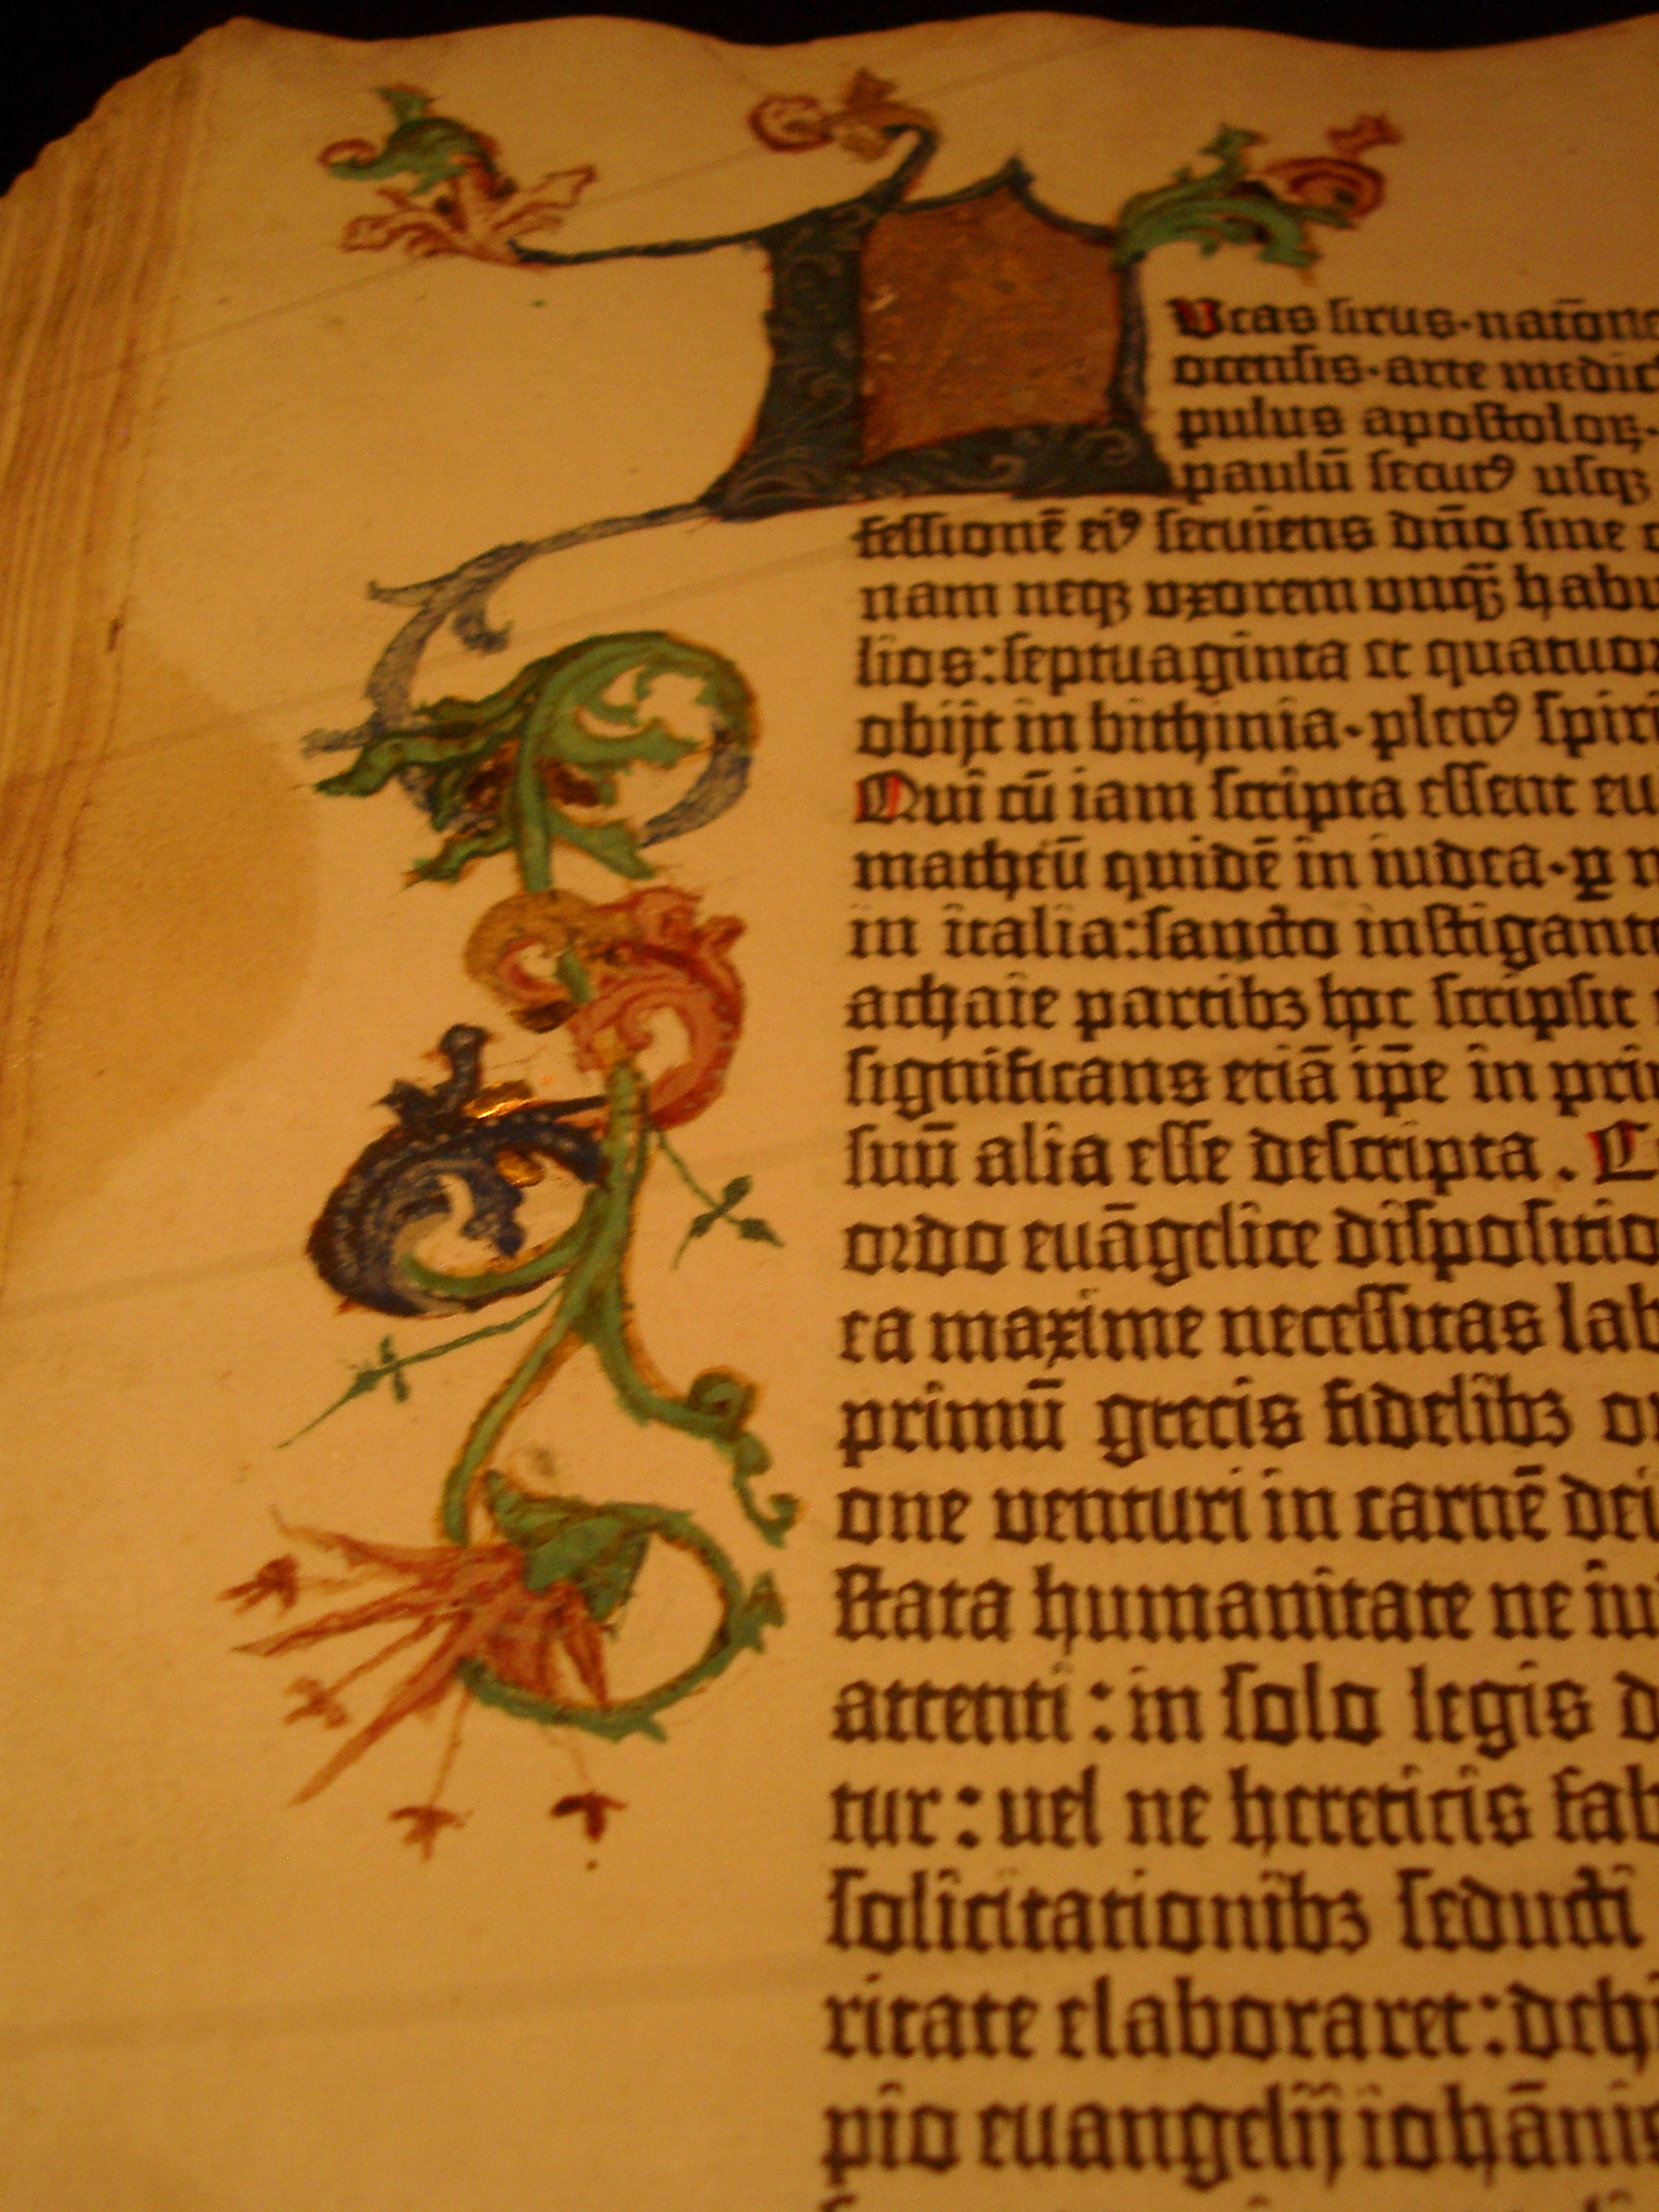 L
Vcas sirus·natōne
ocensis·arte medic
pulus apostoloꝝ·
paulū secutꝰ usqꝫ
fessionē eiꝰ seruiens dn̄o sine c
nam neqꝫ vxorem vnqꝫ̄ habu
lios:septuaginta et quatuor
obijt in bithinia·plenꝰ spiri
Qui cū iam scripta essent eu
matheū quidē in iudea·ꝑ m
in italia:sancto instigante
achaie partibꝫ hoc scripsit
significans etiā ip̄e in prin
suū alia esse descripta. C
ordo euāgelice dispositio
ea maxime necessitas lab
primū grecis fidelibꝫ o
one venturi in carnē dei
stata humanitate ne iu
attenti:in solo legis d
tur:uel ne hereticis fab
solicitationibꝫ seducti
ritate elaboraret:dehi
pio euangelij iohānis